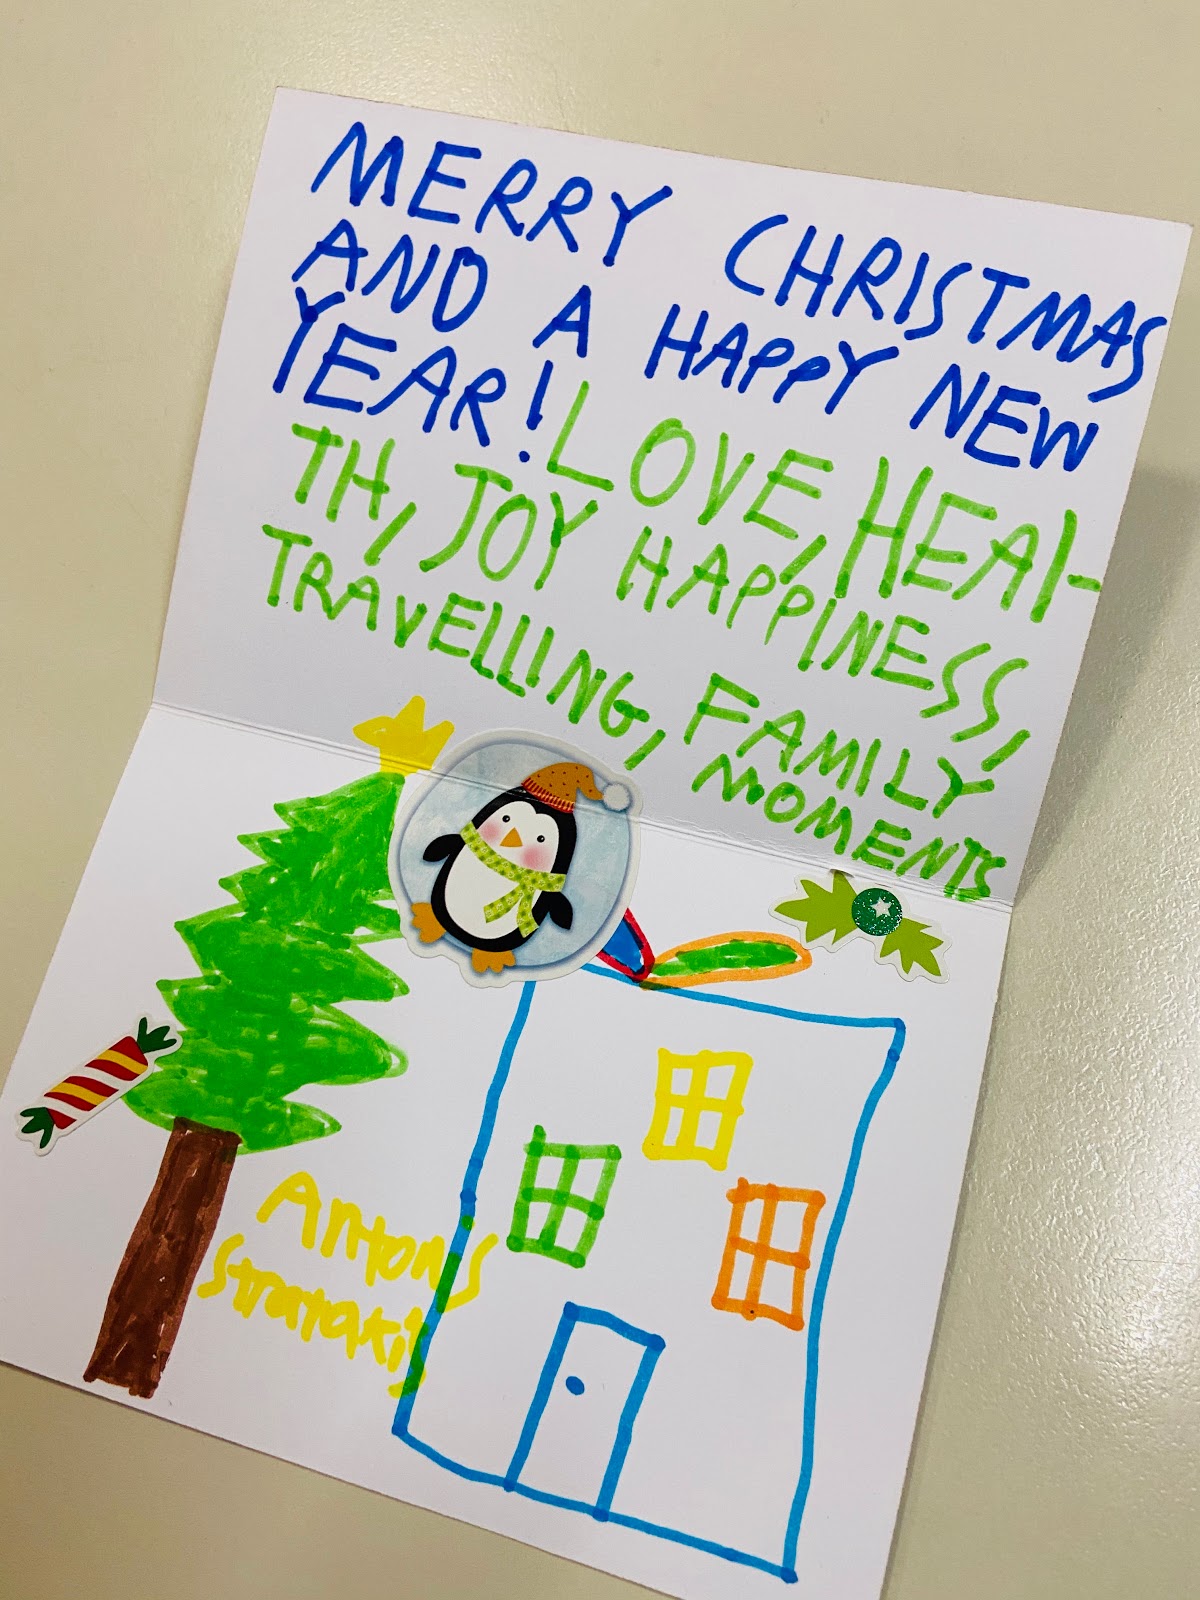 MERRY CHRISTMAS
AND A HAPPY NEW
YEAR! LOVE, HEAl-
TH, JOY HAPPINESS,
TRAVEllING, FAMILY
MOMENTS
Antonis
Strataki's